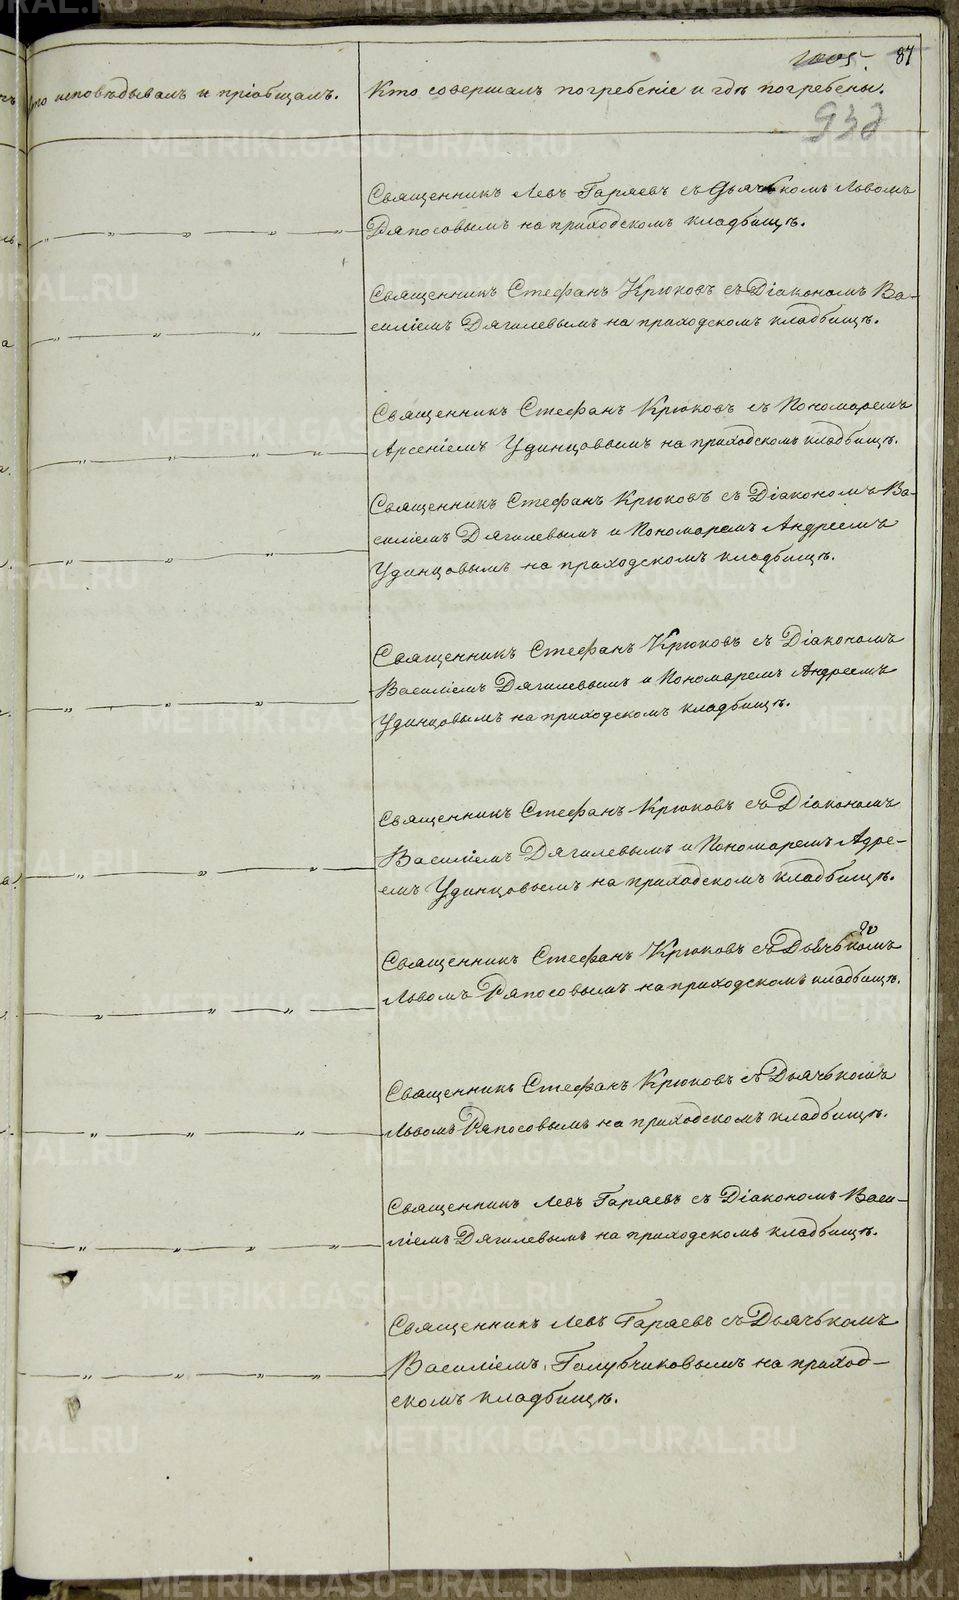 87
932
Кто исповѣдывалъ и пріобщалъ.
Кто совершалъ погребеніе и гдѣ погребены.
Священникъ Левъ Гаряевъ съ Дьячькомъ Львомъ
Ряпосовымъ на приходскомъ кладбищѣ.
Священникъ Стефанъ Крюковъ съ Діакономъ Ва-
силіемъ Дягилевымъ на приходскомъ кладбищѣ.
Священникъ Стефанъ Крюковъ съ Пономаремъ
Арсеніемъ Удинцовымъ на приходскомъ кладбищѣ.
Священникъ Стефанъ Крюковъ съ Діакономъ Ва-
силіемъ Дягилевымъ и Пономаремъ Андреемъ
Удинцовымъ на приходскомъ кладбищѣ.
Священникъ Стефанъ Крюковъ съ Діакономъ
Василіемъ Дягилевымъ и Пономаремъ Андреемъ
Удинцовымъ на приходскомъ кладбищѣ.
Священникъ Стефанъ Крюковъ съ Діакономъ
Василіемъ Дягилевымъ и Пономаремъ Адре-
емъ Удинцовымъ на приходскомъ кладбищѣ.
Священникъ Стефанъ Крюковъ съ Дьячькомъ
Львомъ Ряпосовымъ на приходскомъ кладбищѣ.
Священникъ Стефанъ Крюковъ съ Дьячькомъ
Львомъ Ряпосовымъ на приходскомъ кладбищѣ.
Священникъ Левъ Гаряевъ съ Діакономъ Васи-
ліемъ Дягилевымъ на приходскомъ кладбищѣ.
Священникъ Левъ Гаряевъ съ Дьячькомъ
Василіемъ Голубчиковымъ на приход-
скомъ кладбищѣ.
METRIKI.GASO-URAL.RU